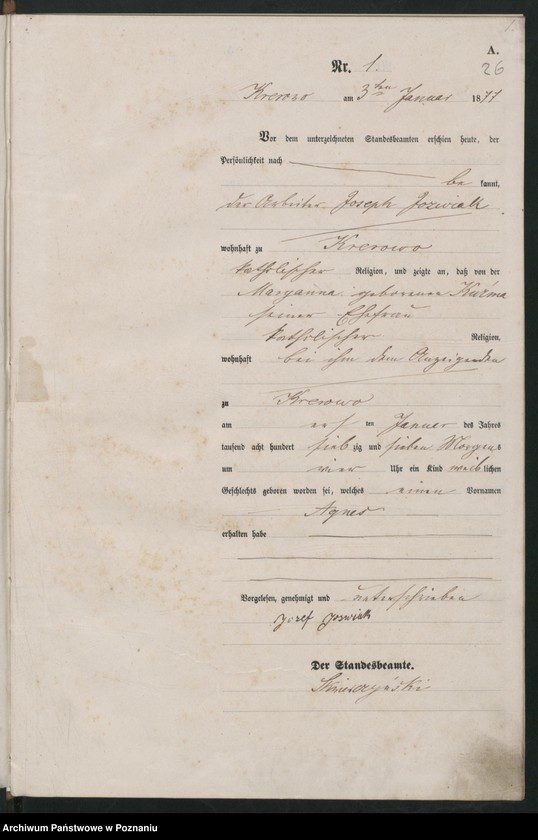 1.
A.
26
Nr. 1.
Krerowo am 3ten Januar 1877
Vor dem unterzeichneten Standesbeamten erschien heute, der
Persönlichkeit nach
be kannt,
der Arbeiter Joseph Jozwiak
wohnhaft zu Krerowo
katholischer Religion, und zeigte an, daß von der
Maryanna geborenen Kuźma
seiner Ehefrau
katholischer Religion,
wohnhaft bei ihm dem Anzeigenden
zu Krerowo
am ersten Januar des Jahres
tausend acht hundert siebzig und sieben Morgens
um vier Uhr ein Kind weiblichen
Geschlechts geboren worden sei, welches einen Vornamen
Agnes
erhalten habe
Vorgelesen, genehmigt und unterschrieben
Jozef Jozwiak
Der Standesbeamte.
Archiwum Państwowe w Poznaniu